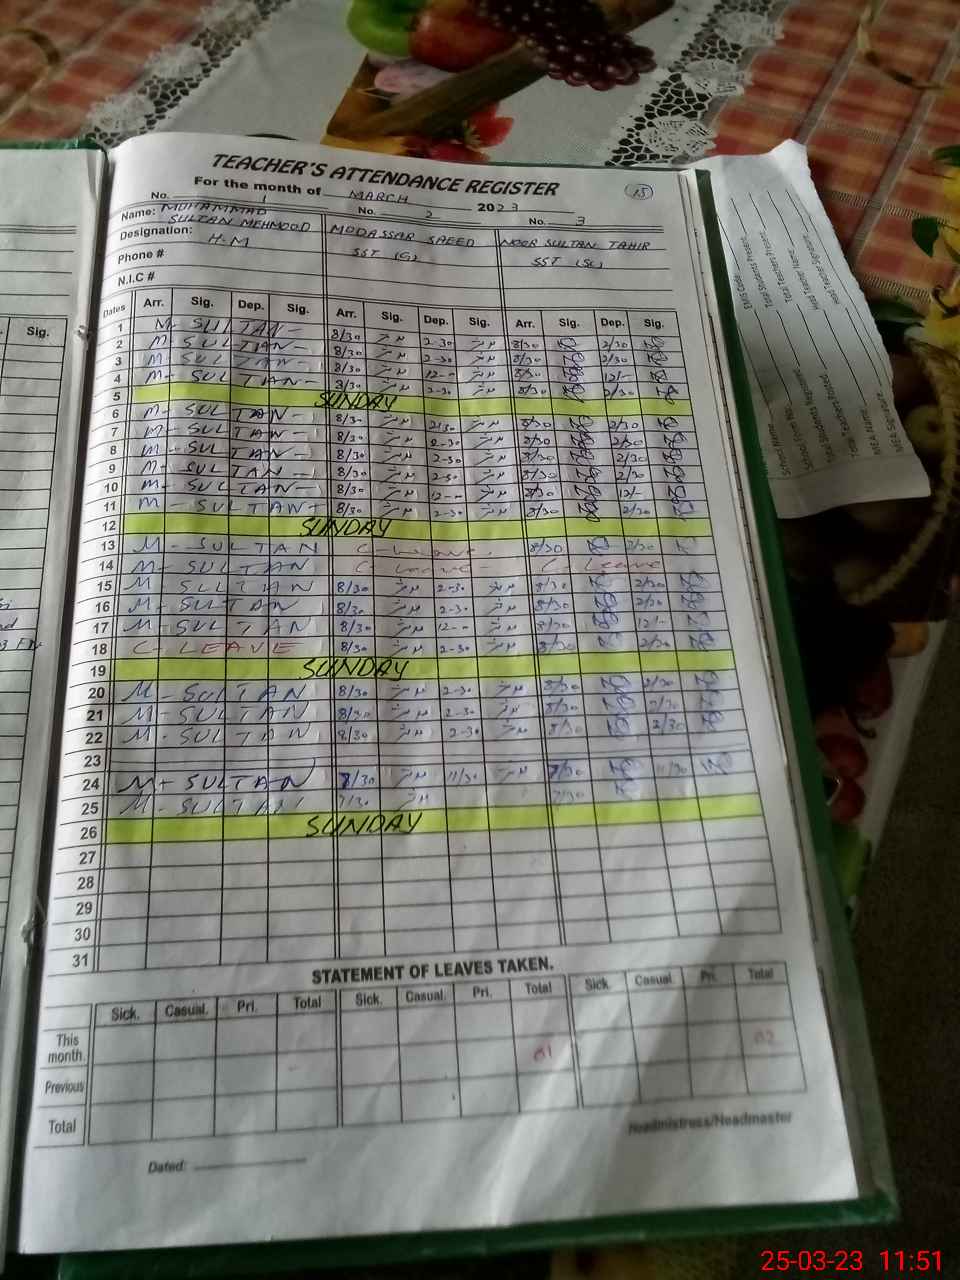 TEACHER'S ATTENDANCE REGISTER
15
For the month of MARCH 2023
No. 1 No. 2 No. 3
Name: MUHAMMAD SULTAN MEHMOOD MODASSAR SAEED NOOR SULTAN TAHIR
Designation: H-M SST (G) SST (Sc)
Phone #
N.I.C #
Dates Arr. Sig. Dep. Sig. Arr. Sig. Dep. Sig. Arr. Sig. Dep. Sig.
1 M- SULTAN- 8/30 2-30 8/30 2/30
2 M- SULTAN- 8/30 2-30 8/30 2/30
3 M- SULTAN- 8/30 12- 8/30 12/-
4 M- SULTAN- 8/30 2-30 8/30 2/30
5 SUNDAY
6 M- SULTAN- 8/30 2/30 8/30 2/30
7 M- SULTAN- 8/30 2-30 8/30 2/30
8 M- SULTAN- 8/30 2-30 8/30 2/30
9 M- SULTAN- 8/30 2-30 8/30 2/30
10 M- SULTAN- 8/30 12- 8/30 12/-
11 M- SULTAN- 8/30 2-30 8/30 2/30
12 SUNDAY
13 M- SULTAN C-Leave. 8/30 2/30
14 M- SULTAN C-Leave- C-Leave
15 M- SULTAN 8/30 2-30 8/30 2/30
16 M- SULTAN 8/30 2-30 8/30 2/30
17 M- SULTAN 8/30 12- 8/30 12/-
18 C- LEAVE 8/30 2-30 8/30 2/30
19 SUNDAY
20 M- SULTAN 8/30 2-30 8/30 2/30
21 M- SULTAN 8/30 2-30 8/30 2/30
22 M- SULTAN 8/30 2-30 8/30 2/30
23
24 M- SULTAN 7/30 11/30 7/30 11/30
25 M- SULTAN 7/30 7/30
26 SUNDAY
27
28
29
30
31
STATEMENT OF LEAVES TAKEN.
Sick. Casual. Pri. Total Sick. Casual. Pri. Total Sick. Casual Pri. Total
This month. 01 02
Previous
Total
Headmistress/Headmaster
Dated:
Sig.
EMIS Code
Total Students Present
Total Teachers Present
Head Teacher Name
Head Teacher Signature
School Name
School Form No
Total Students Registered
Total Teachers Posted
MEA Name
MEA Signature
25-03-23 11:51